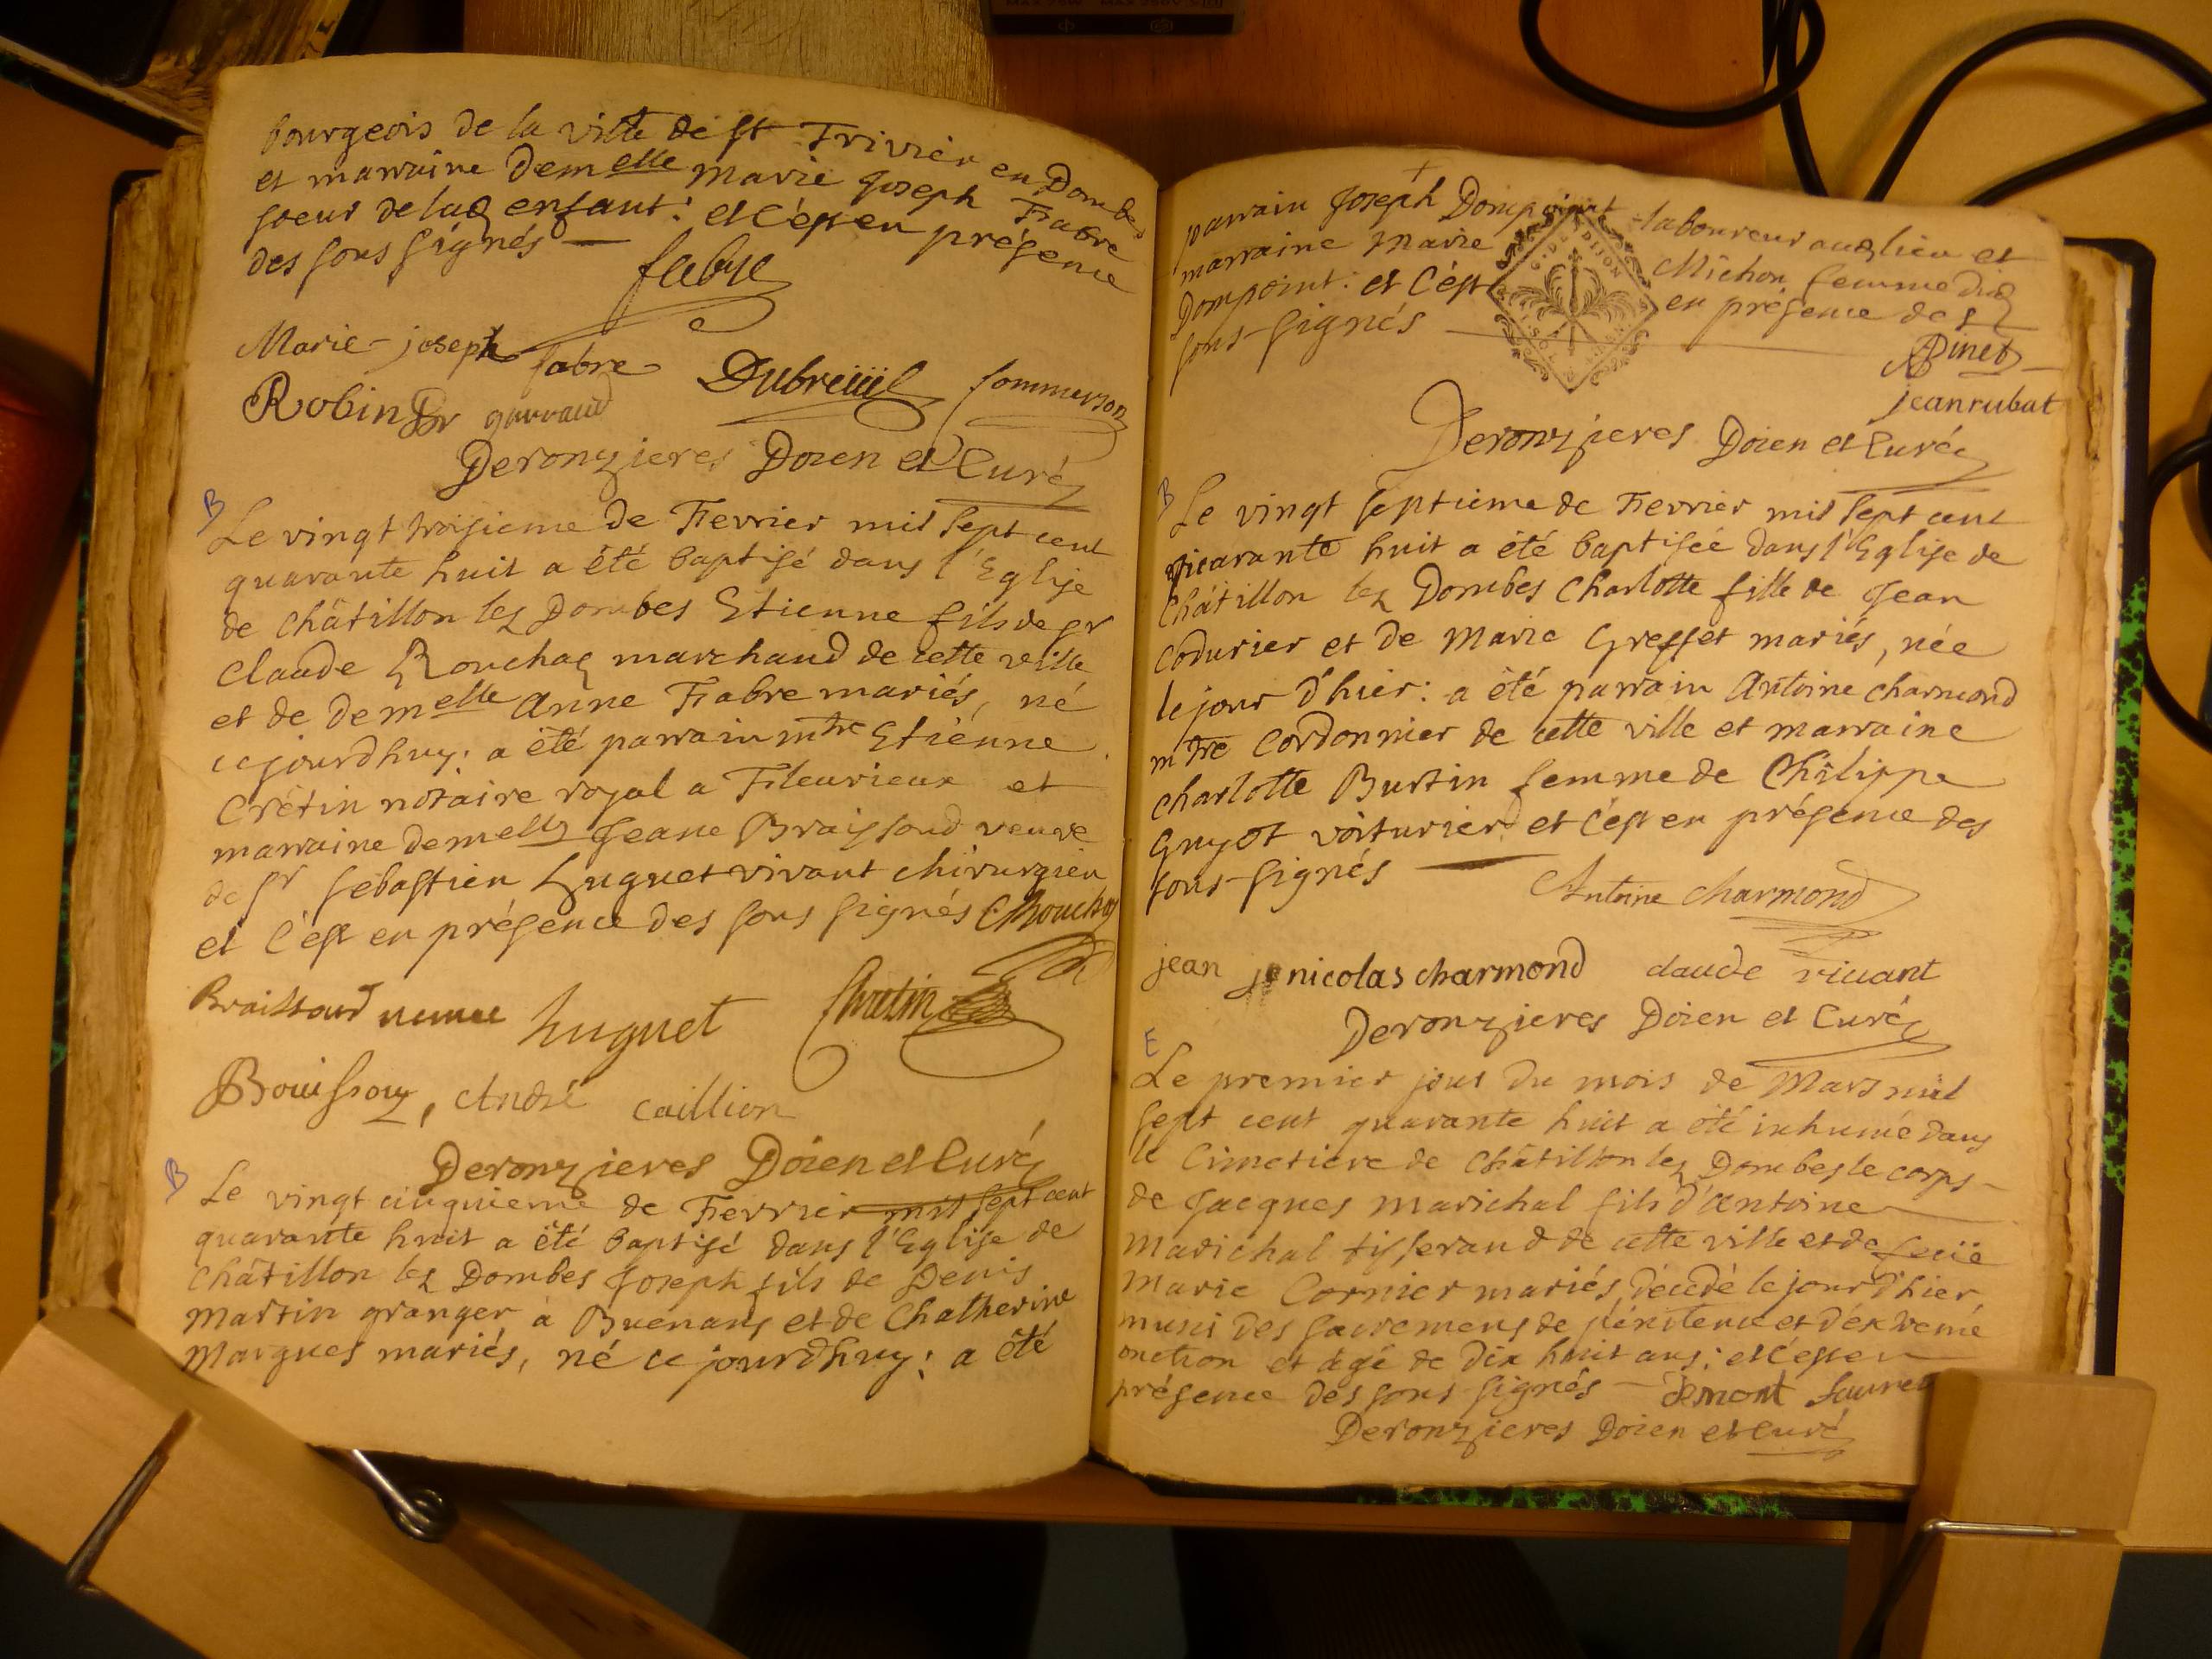 bourgeois de la ville de st Trivier en Dombes
et marraine demelle marie Joseph Fabre
soeur de lad enfant: et c'est en présence
des sous signés
fabre
Marie-joseph fabre Dubreüil sommerson
Robin garraud
Deronzieres Doien et Curé
B
Le vingt troisieme de Fevrier mil sept cent
quarante huit a été baptisé dans l'Eglise
de Châtillon lez Dombes Etienne fils de sr
Claude Chouchag marchand de cette ville
et de demelle Anne Fabre mariés, né
cejourdhuy: a été parrain mtre Etienne
Crétin notaire royal a Fleurieux et
marraine demelle Jeane Braissoud veuve
de sr Sebastien huguet vivant chirurgien
et c'est en présence des sous signés Chouchag
Braissoud veuve huguet Chretin
Bouisson, André caillion
Deronzieres Doien et Curé
B
Le vingt cinquieme de Fevrier mil sept cent
quarante huit a été baptisé dans l'Eglise de
Châtillon lez Dombes Joseph fils de Denis
Martin granger à Buenans et de Chatherine
Maigues mariés, né ce jourdhuy: a été
parrain Joseph Dompoint laboureur aud lieu et
marraine Marie Michon femme dud
Dompoint: et c'est en présence des
sous-signés
G. DE DIJON
Pinet
jean rubat
Deronzieres Doien et Curé
B
Le vingt septieme de Fevrier mil sept cent
quarante huit a été baptisée dans l'Eglise de
Châtillon lez Dombes Charlotte fille de Jean
Codurier et de Marie Greffet mariés, née
le jour d'hier: a été parrain Antoine charmond
mtre Cordonnier de cette ville et marraine
charlotte Burtin femme de Philippe
Guyot voiturier et c'est en présence des
sous-signés
Antoine charmond
jean nicolas charmond claude vivant
Deronzieres Doien et Curé
E
Le premier jour du mois de Mars mil
sept cent quarante huit a été inhumé dans
le Cimetiere de Châtillon lez Dombes le corps
de Jacques Marichal fils d'antoine
Marichal tisserand de cette ville et de feüe
Marie Cornier mariés, décédé le jour d'hier,
muni des sacremens de pénitence et d'extreme
onction et âgé de dix huit ans: et c'est en
présence des sous signés
Deronzieres Doien et Curé